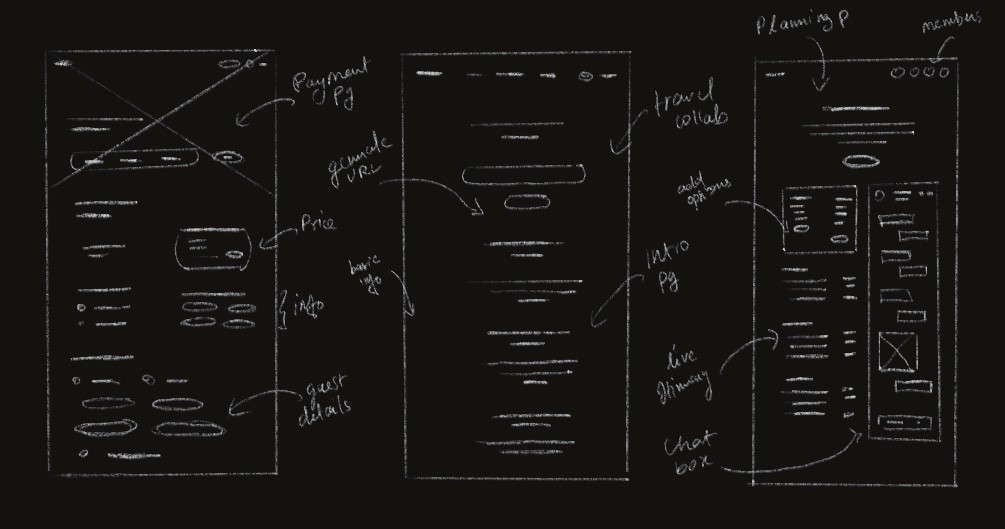 Payment
pg
Price
info
guest
details
generate
URL
basic
info
travel
collab
intro
pg
Planning P
members
add
options
live
itinerary
Chat
box